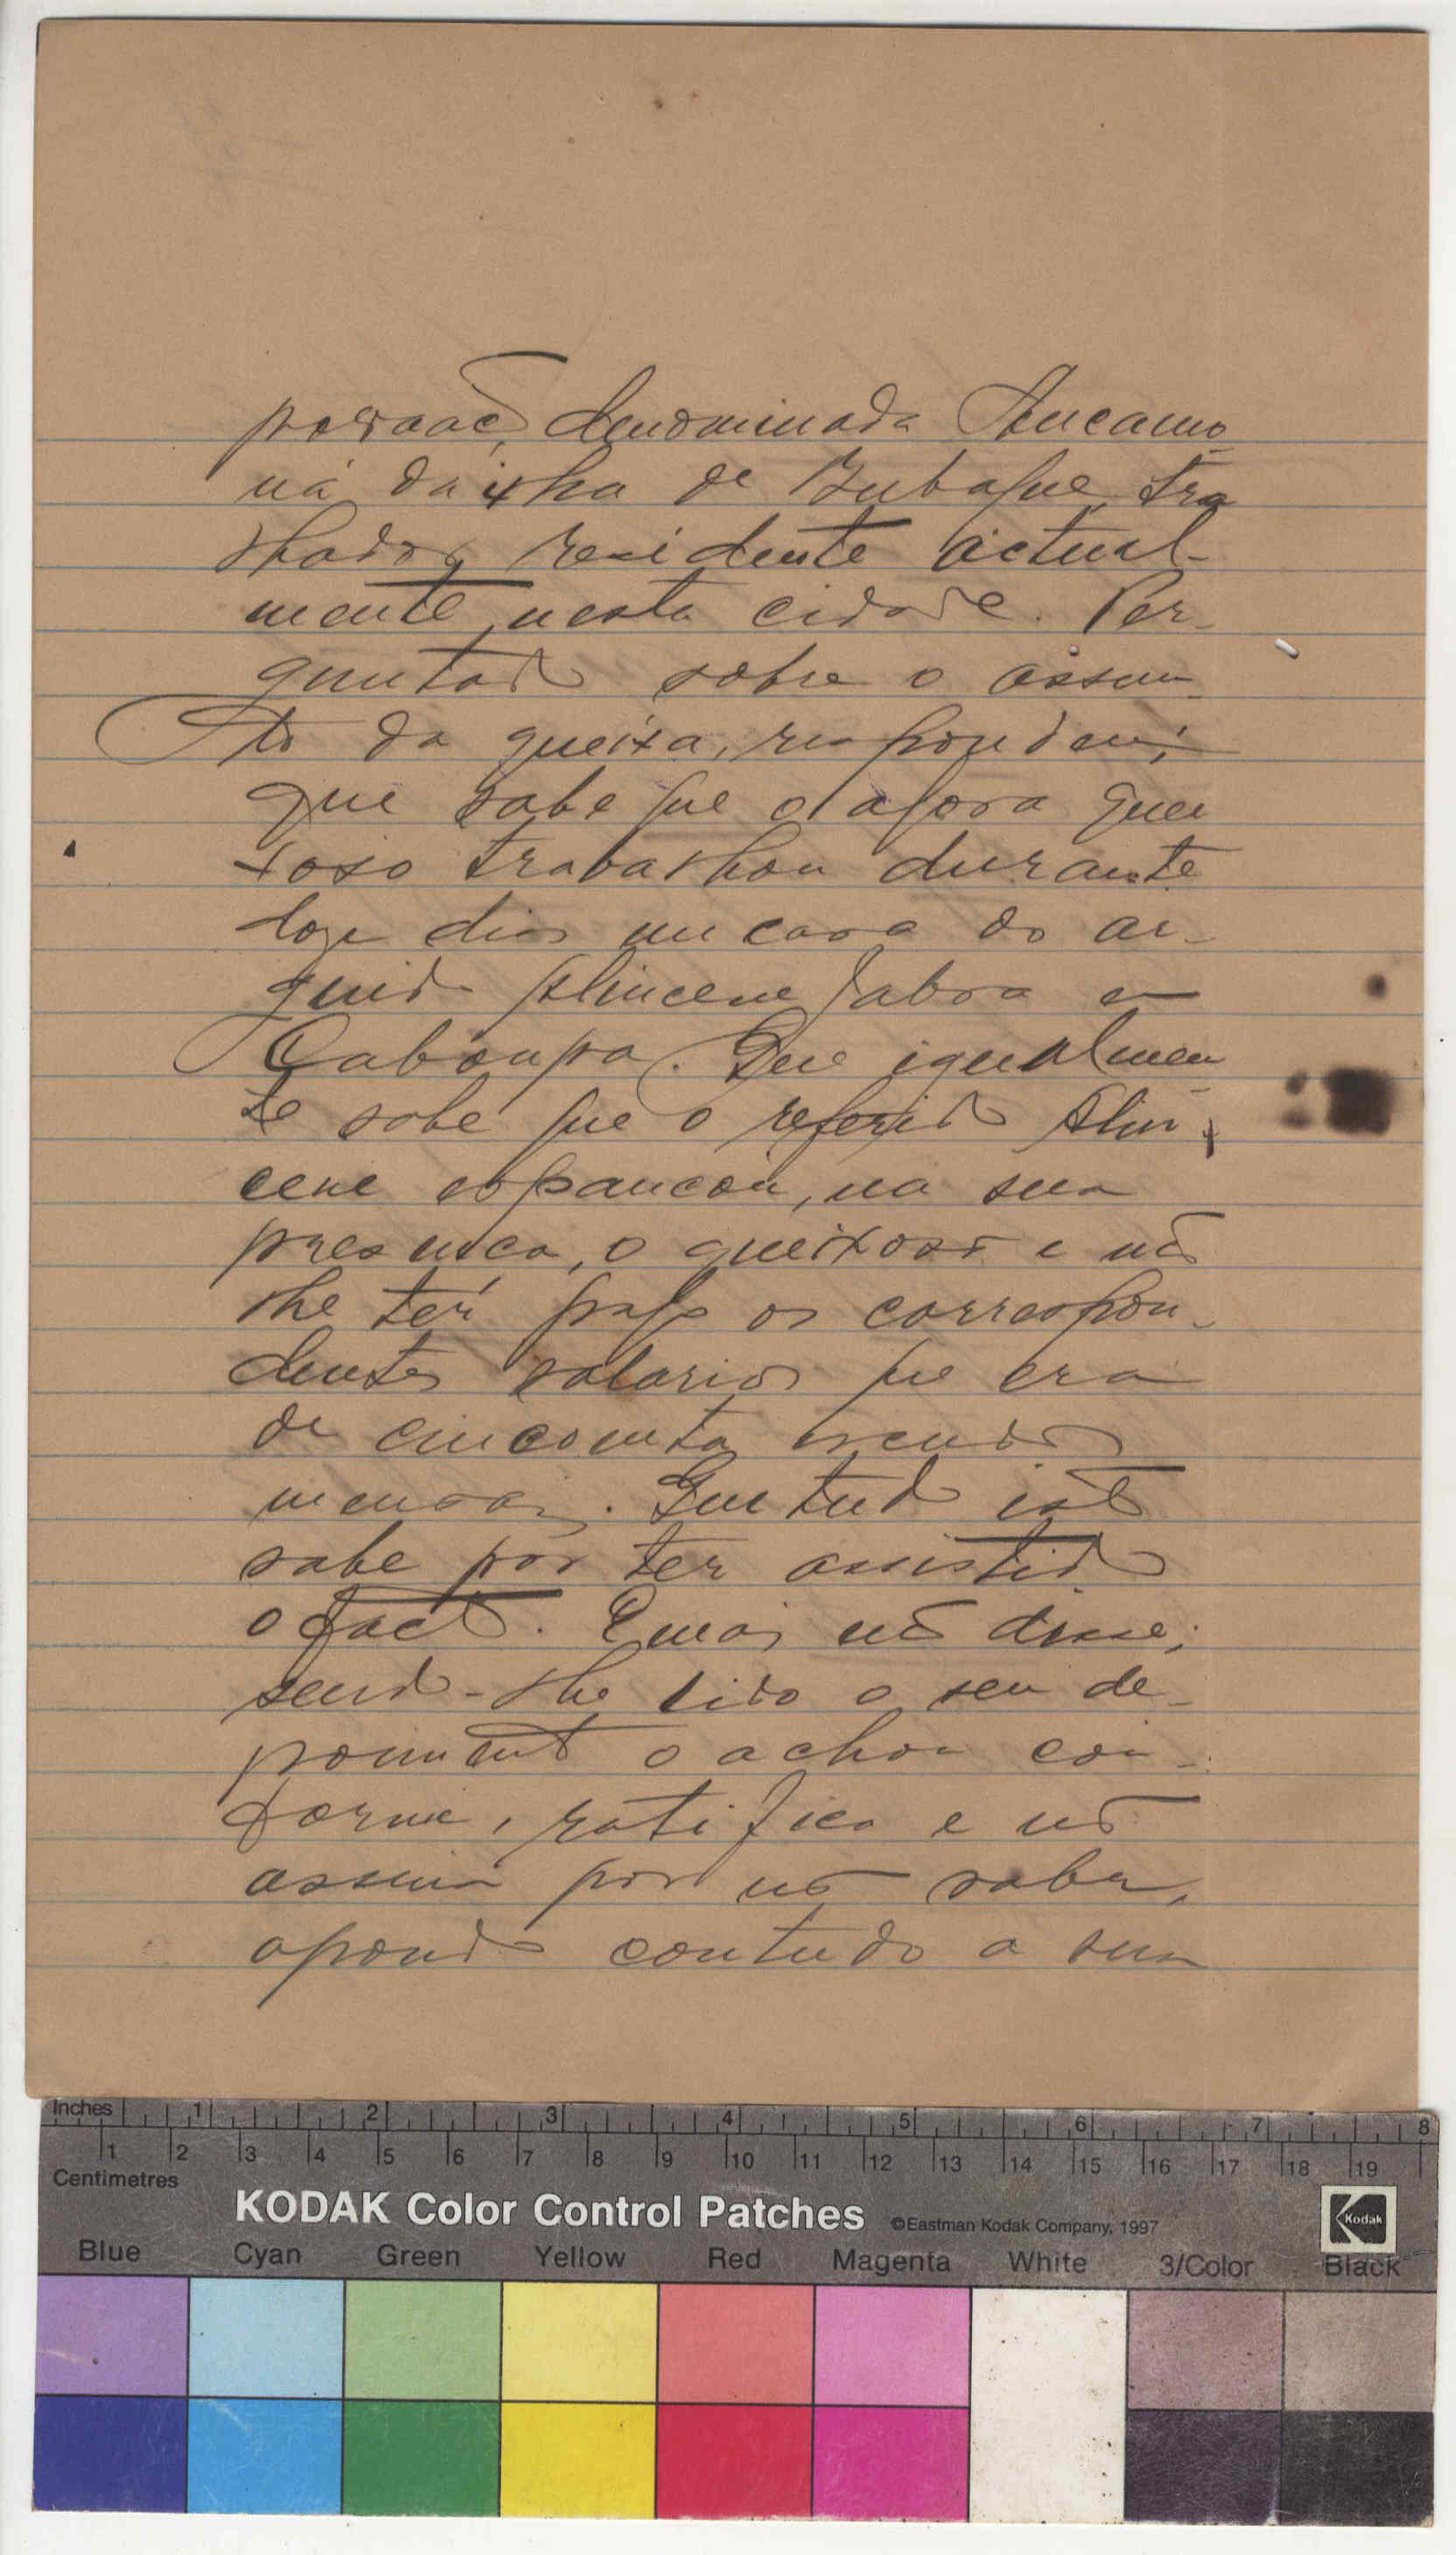 povoação, denominada Ancamo
ná da ilha de Bubaque, tra
lhador, residente actual-
mente nesta cidade. Per-
guntado sobre o assun-
to da queixa, respondeu;
que sabe que o agora quei
xoso trabalhou durante
doze dias em casa do ar-
guido Alincene Jabra em
Caboupa. Que igualmen
te sabe que o referido Alin
cene espancou, na sua
presença, o queixoso e não
lhe ter pago os correspon-
dentes salarios que era
de cincoenta escudos
mensais. Que tudo isto
sabe por ter assistido
o facto. E mais não disse;
sendo-lhe lido o seu de-
poimento o achou con-
forme, ratifica e não
assina por não saber,
apondo contudo a sua
Inches 1 2 3 4 5 6 7 8
1 2 3 4 5 6 7 8 9 10 11 12 13 14 15 16 17 18 19
Centimetres
KODAK Color Control Patches ©Eastman Kodak Company, 1997 Kodak
Blue Cyan Green Yellow Red Magenta White 3/Color Black